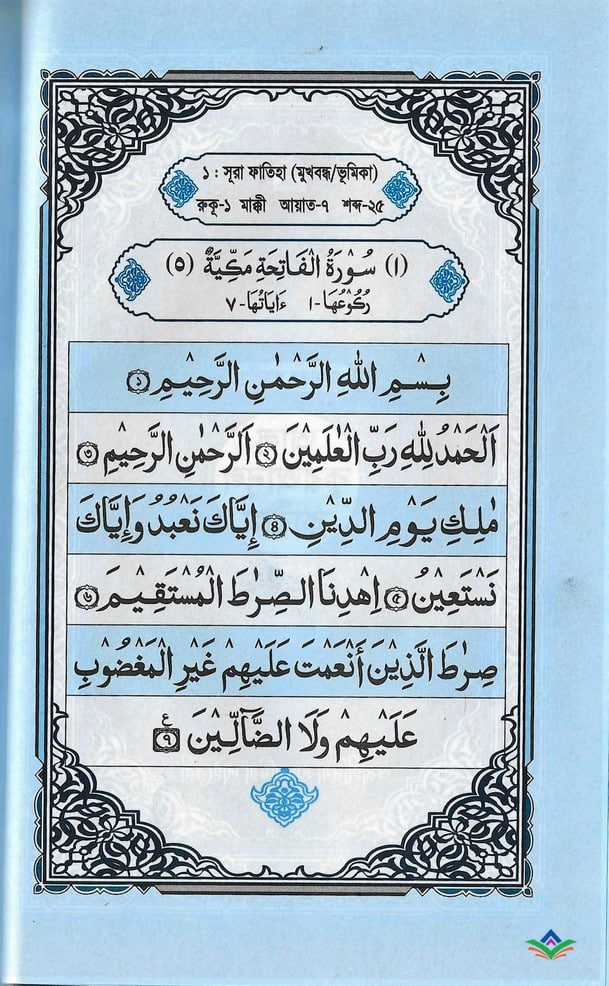 ১ : সূরা ফাতিহা (মুখবন্ধ/ভূমিকা)
রুকূ-১ মাক্কী আয়াত-৭ শব্দ-২৫
(١) سُوْرَةُ الْفَاتِحَةِ مَكِّيَّةٌ (٥)
رُكُوْعُهَا-١ ءَايَاتُهَا-٧
بِسْمِ اللهِ الرَّحْمٰنِ الرَّحِيْمِ ১
اَلْحَمْدُ لِلّٰهِ رَبِّ الْعٰلَمِيْنَ ২ اَلرَّحْمٰنِ الرَّحِيْمِ ৩
مٰلِكِ يَوْمِ الدِّيْنِ ৪ إِيَّاكَ نَعْبُدُ وَإِيَّاكَ
نَسْتَعِيْنُ ৫ اِهْدِنَا الصِّرٰطَ الْمُسْتَقِيْمَ ৬
صِرٰطَ الَّذِيْنَ أَنْعَمْتَ عَلَيْهِمْ غَيْرِ الْمَغْضُوْبِ
عَلَيْهِمْ وَلَا الضَّآلِّيْنَ ৭ ع